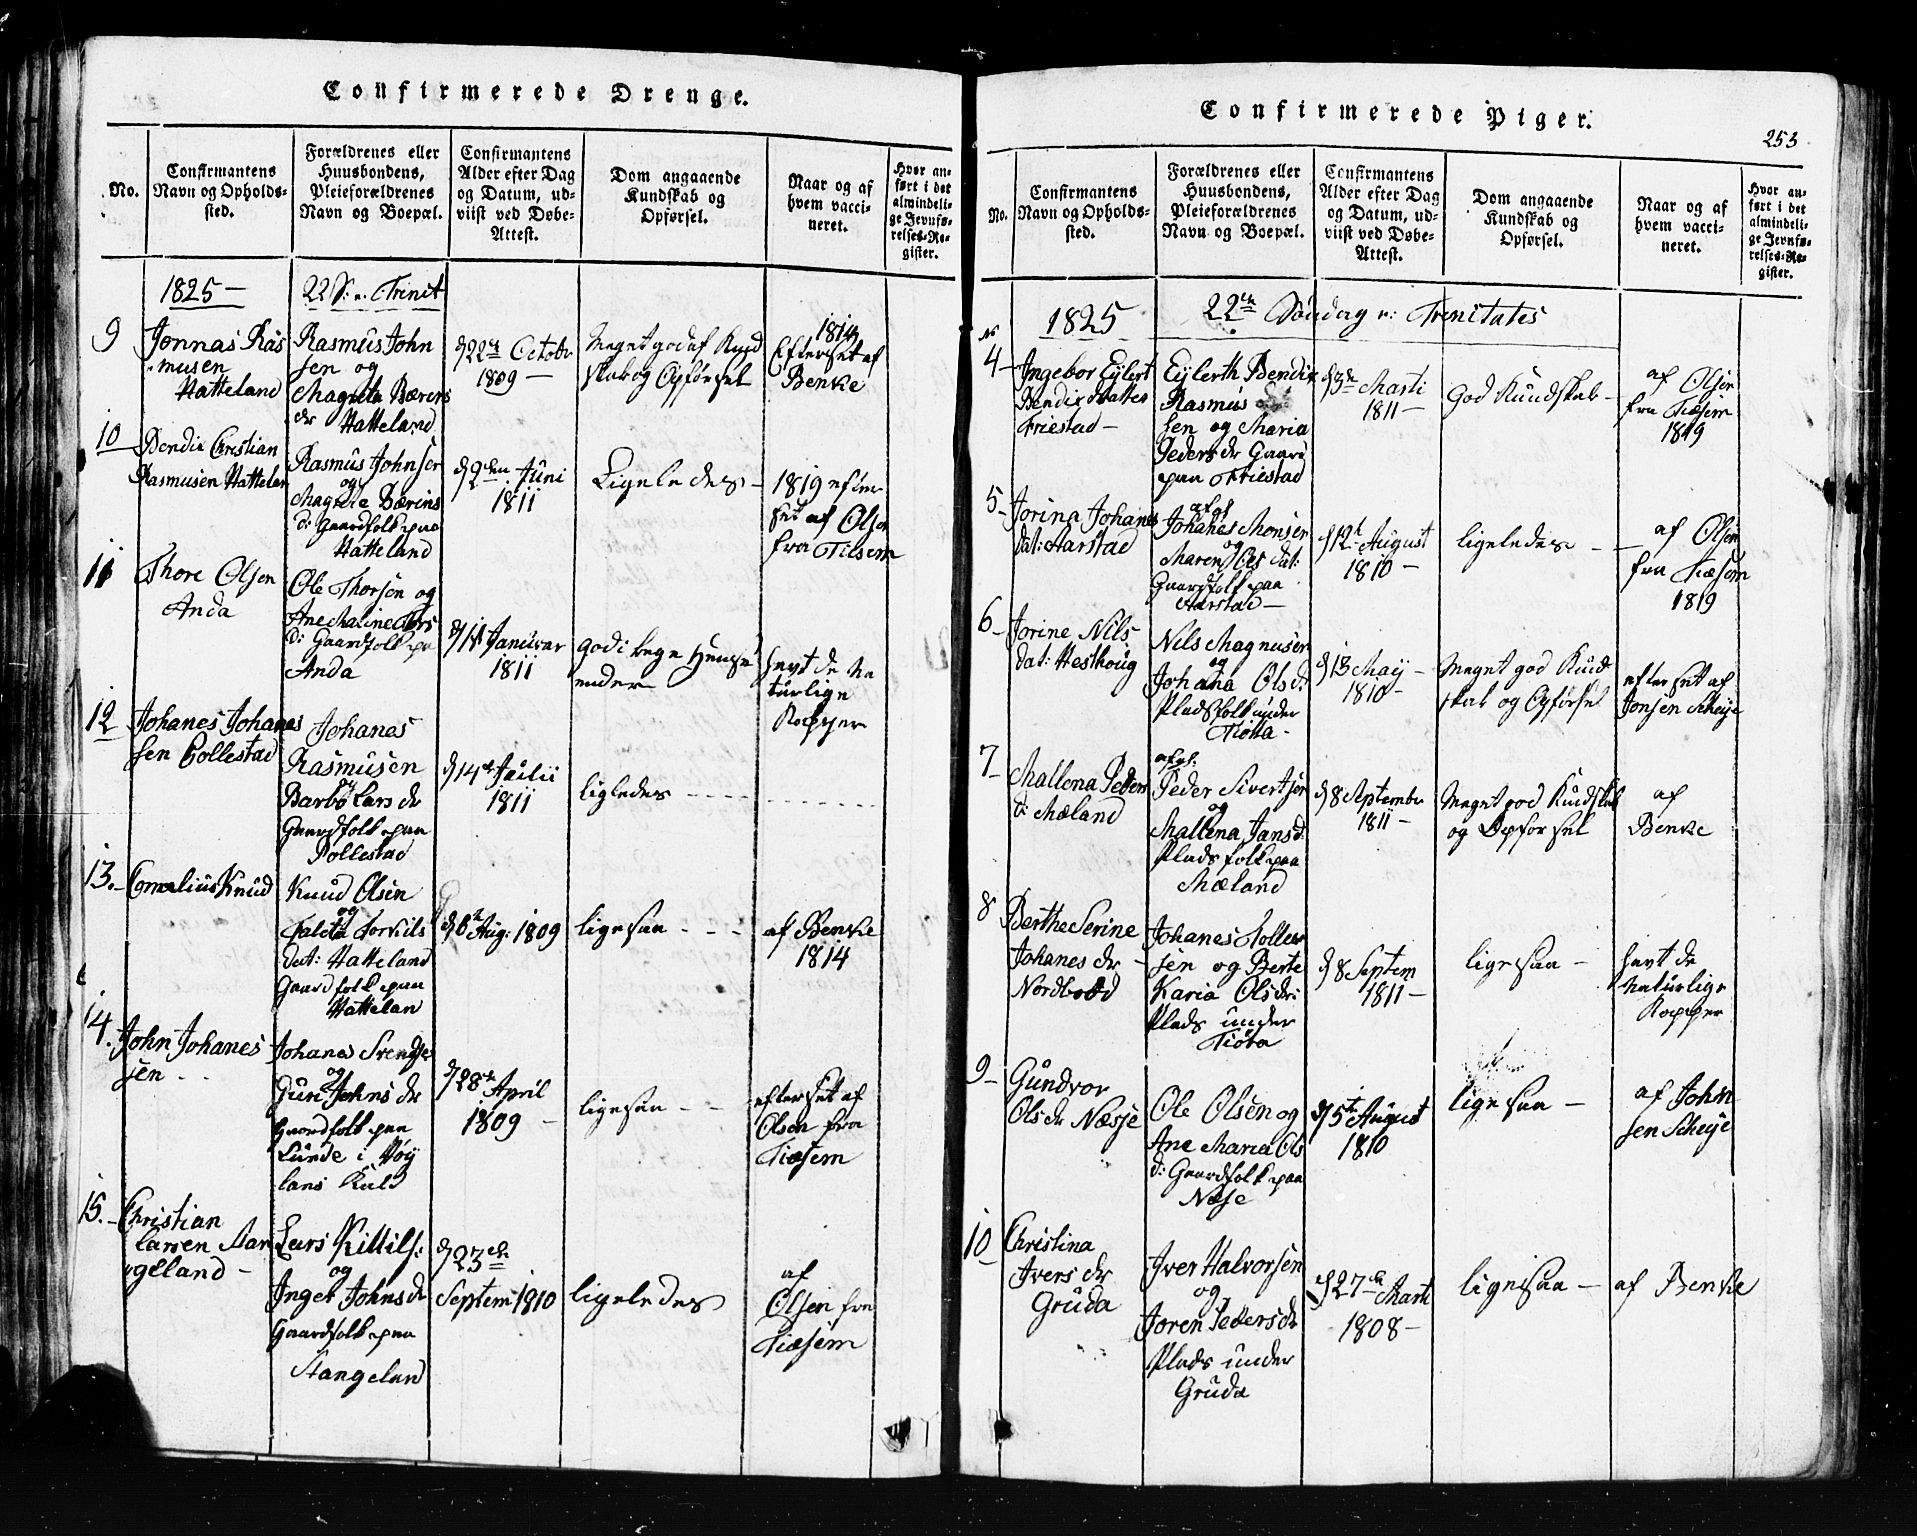 Confirmerede Drenge.
No.
Confirmantens
Navn og Opholds-
sted.
Forældrenes eller
Huusbondens,
Pleieforældrenes
Navn og Boepæl.
Confirmantens
Alder efter Dag
og Datum, ud-
viist ved Døbe-
Attest.
Dom angaaende
Kundskab og
Opførsel.
Naar og af
hvem vacci-
neret.
Hvor an-
ført i det
almindeli-
ge Jevnfø-
relses-Re-
gister.
1825 -
22 S: e: Trinit
9
Jonnas Ras
musen
Hatteland
Rasmus John
sen og
Magreta Bærens
dr Hatteland
d 22 Octobr
1809 -
Meget god af Kund
skab og Opførsel
1814
Efterset af
Benke
10
Bendix Christian
Rasmusen Hattelan
Rasmus Johnsen
og
Magrete Bærins
d: Gaardfolk paa
Hatteland
d 2den Juni
1811
Ligeledes -
1819 efter
set af Olsen
fra Tiesem
11
Thore Olsen
Anda
Ole Thorsen og
Ane Maline Thors
d: Gaardfolk pa
Anda
d 11 Januar
1811
god i bege Hense
ender
havt de Na
turlige
Kopper
12
Johanes Johanes
sen Pollestad
Johanes
Rasmusen
og
Barbo Lars dr
Gaardfolk paa
Pollestad
d 14de Julii
1811
ligledes - - - -
13. -
Cornelius Knud
Knud Olsen
og
Taleta Torkils
dat: Hatteland
Gaardfolk paa
Hattelan
d 6te Aug: 1809
ligesaa - - -
af Benke
1814
14.
John Johanes
sen - -
Johanes Svendse
og
Guri Johns dr
Gaardfolk paa
Lunde i Høy
lans Kald
d 28de April
1809 -
ligesaa - -
efterset af
Olsen fra
Tiæsem
15. -
Christian
Larsen Aan
geland -
Lars Kittils:
og
Inger Johns dr
Gaardfolk paa
Stangeland
d 23de
Septem 1810
ligeledes
af
Olsen fra
Tiæsem
Confirmerede Piger.
253
No.
Confirmantens
Navn og Opholds-
sted.
Forældrenes eller
Huusbondens,
Pleieforældrenes
Navn og Boepæl.
Confirmantens
Alder efter Dag
og Datum, ud-
viist ved Døbe-
Attest.
Dom angaaende
Kundskab og
Opførsel.
Naar og af
hvem vacci-
neret.
Hvor an-
ført i det
almindeli-
ge Jevnfø-
relses-Re-
gister.
1825
22de Søndag e: Trinitates
No
4 -
Ingebor Eylert
Bendix Dattes
Friestad -
Eylerth Bendix
Rasmus
sen og Maria
Peders dr Gaar
paa Friestad
Marti
1811 -
God Kundskab -
af Olsen
fra Tiæsem
1819
5 -
Jorina Johanes
dat: Aarstad
afgl
Johanes Monsen
og
Maren Ols dat:
Gaardfolk paa
Aarstad -
d 12 August
1810 -
ligeledes - -
af Olsen
fra Tiæsem
1819
6 -
Jorine Nils
dat: Hesthoug
Nils Magnusen
og
Johana Ols d:
Pladsfolk under
Tiøtta -
d 13 Maij -
1810 -
Meget god Kund
skab og Opførsel
efterset af
Jonsen Scheije
7 -
Mallena Peders
d: Mæland
afgl:
Peder Sivertsen
og
Mallena Jans d:
Pladsfolk paa
Mæland
d 8 Septembr
1811 -
Meget god Kundskab
og Opførsel
af
Benke
8
Berthe Serine
Johanes dr -
Nordbrød
Johanes Toller
sen og Berte
Karia Ols dr:
Plads under
Tiøta
d 8 Septem
1811 -
ligesaa -
havt de
Naturlige
Kopper
9 -
Gundvor
Ols dr Næsje
Ole Olsen og
Ane Maria Ols
d: Gaardfolk paa
Næse
d 5te August
1810
ligesaa -
af John
sen Scheije
10 -
Christina
Ivers dr
Gruda
Iver Halvorsen
og
Joren Peders dr
Plads under
Gruda
d 27de Marti
1808 -
ligesaa -
af Benke